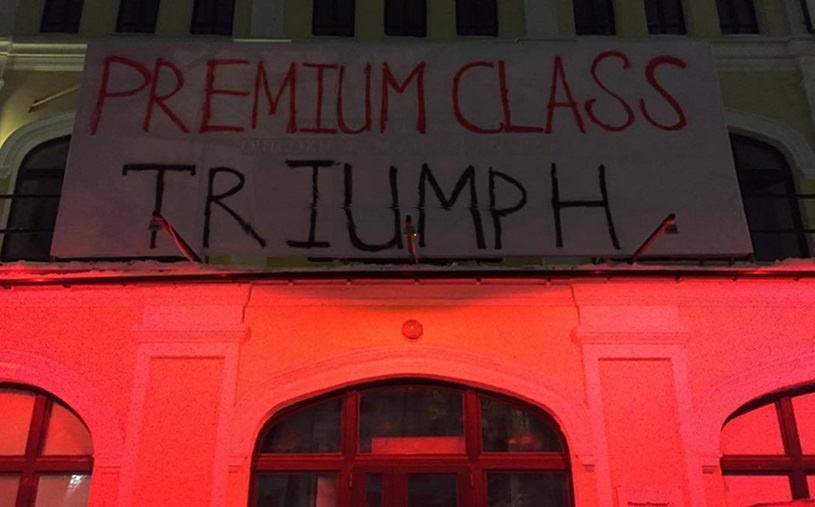 PREMIUM CLASS
TRIUMPH